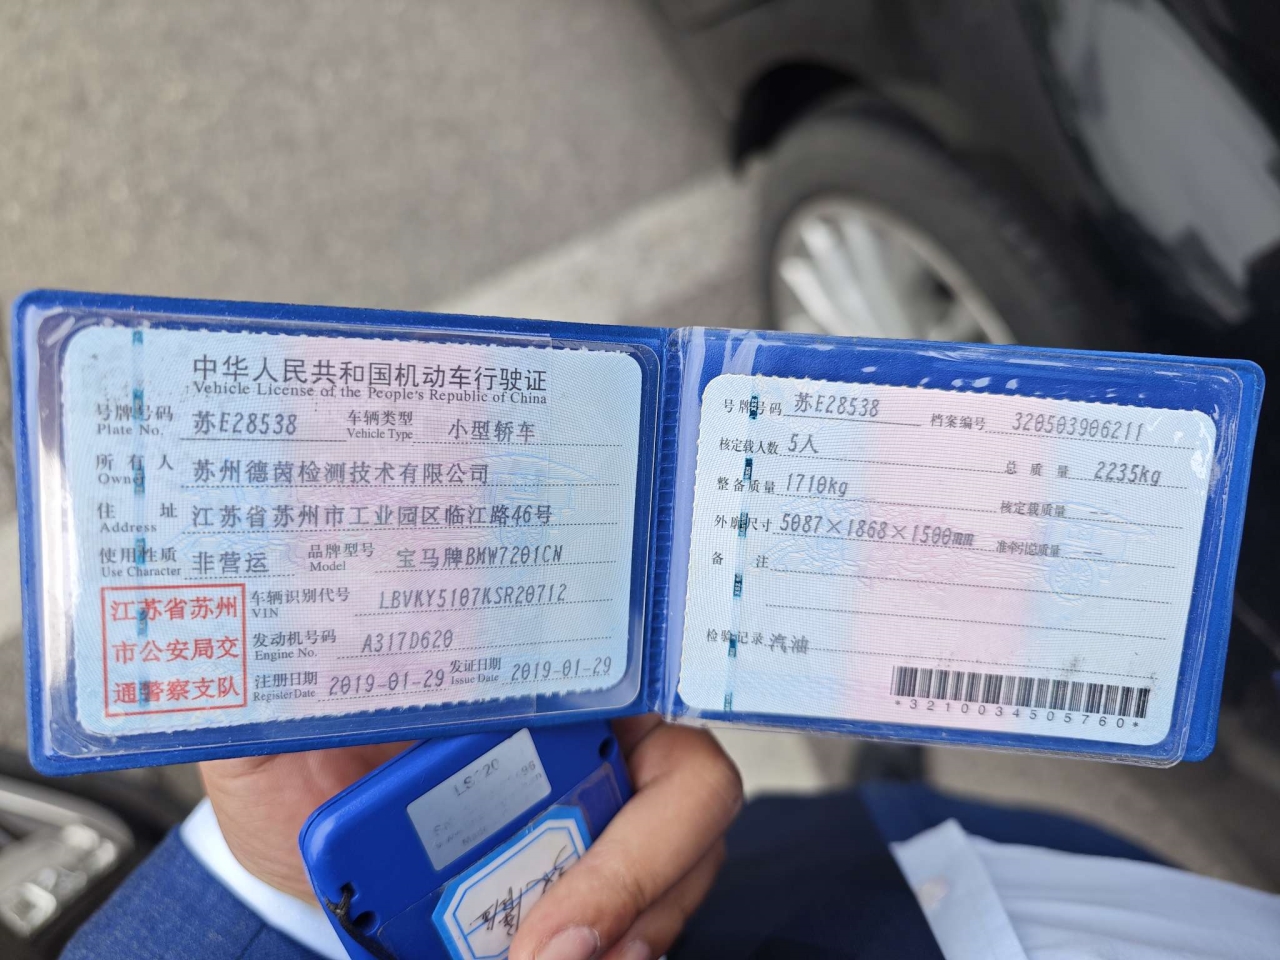 中华人民共和国机动车行驶证
Vehicle License of the People's Republic of China
号牌号码 苏E28538 车辆类型 小型轿车
Plate No. Vehicle Type
所有人 苏州德茵检测技术有限公司
Owner
住址 江苏省苏州市工业园区临江路46号
Address
使用性质 非营运 品牌型号 宝马牌BMW7201CN
Use Character Model
江苏省苏州
市公安局交
通警察支队
车辆识别代号 LBVKY5107KSR20712
VIN
发动机号码 A317D620
Engine No.
注册日期 2019-01-29 发证日期 2019-01-29
Register Date Issue Date
号牌号码 苏E28538 档案编号 320503906211
核定载人数 5人 总质量 2235kg
整备质量 1710kg 核定载质量 --
外廓尺寸 5087×1868×1500 准牵引总质量 --
备注
检验记录 汽油
*3210034505760*